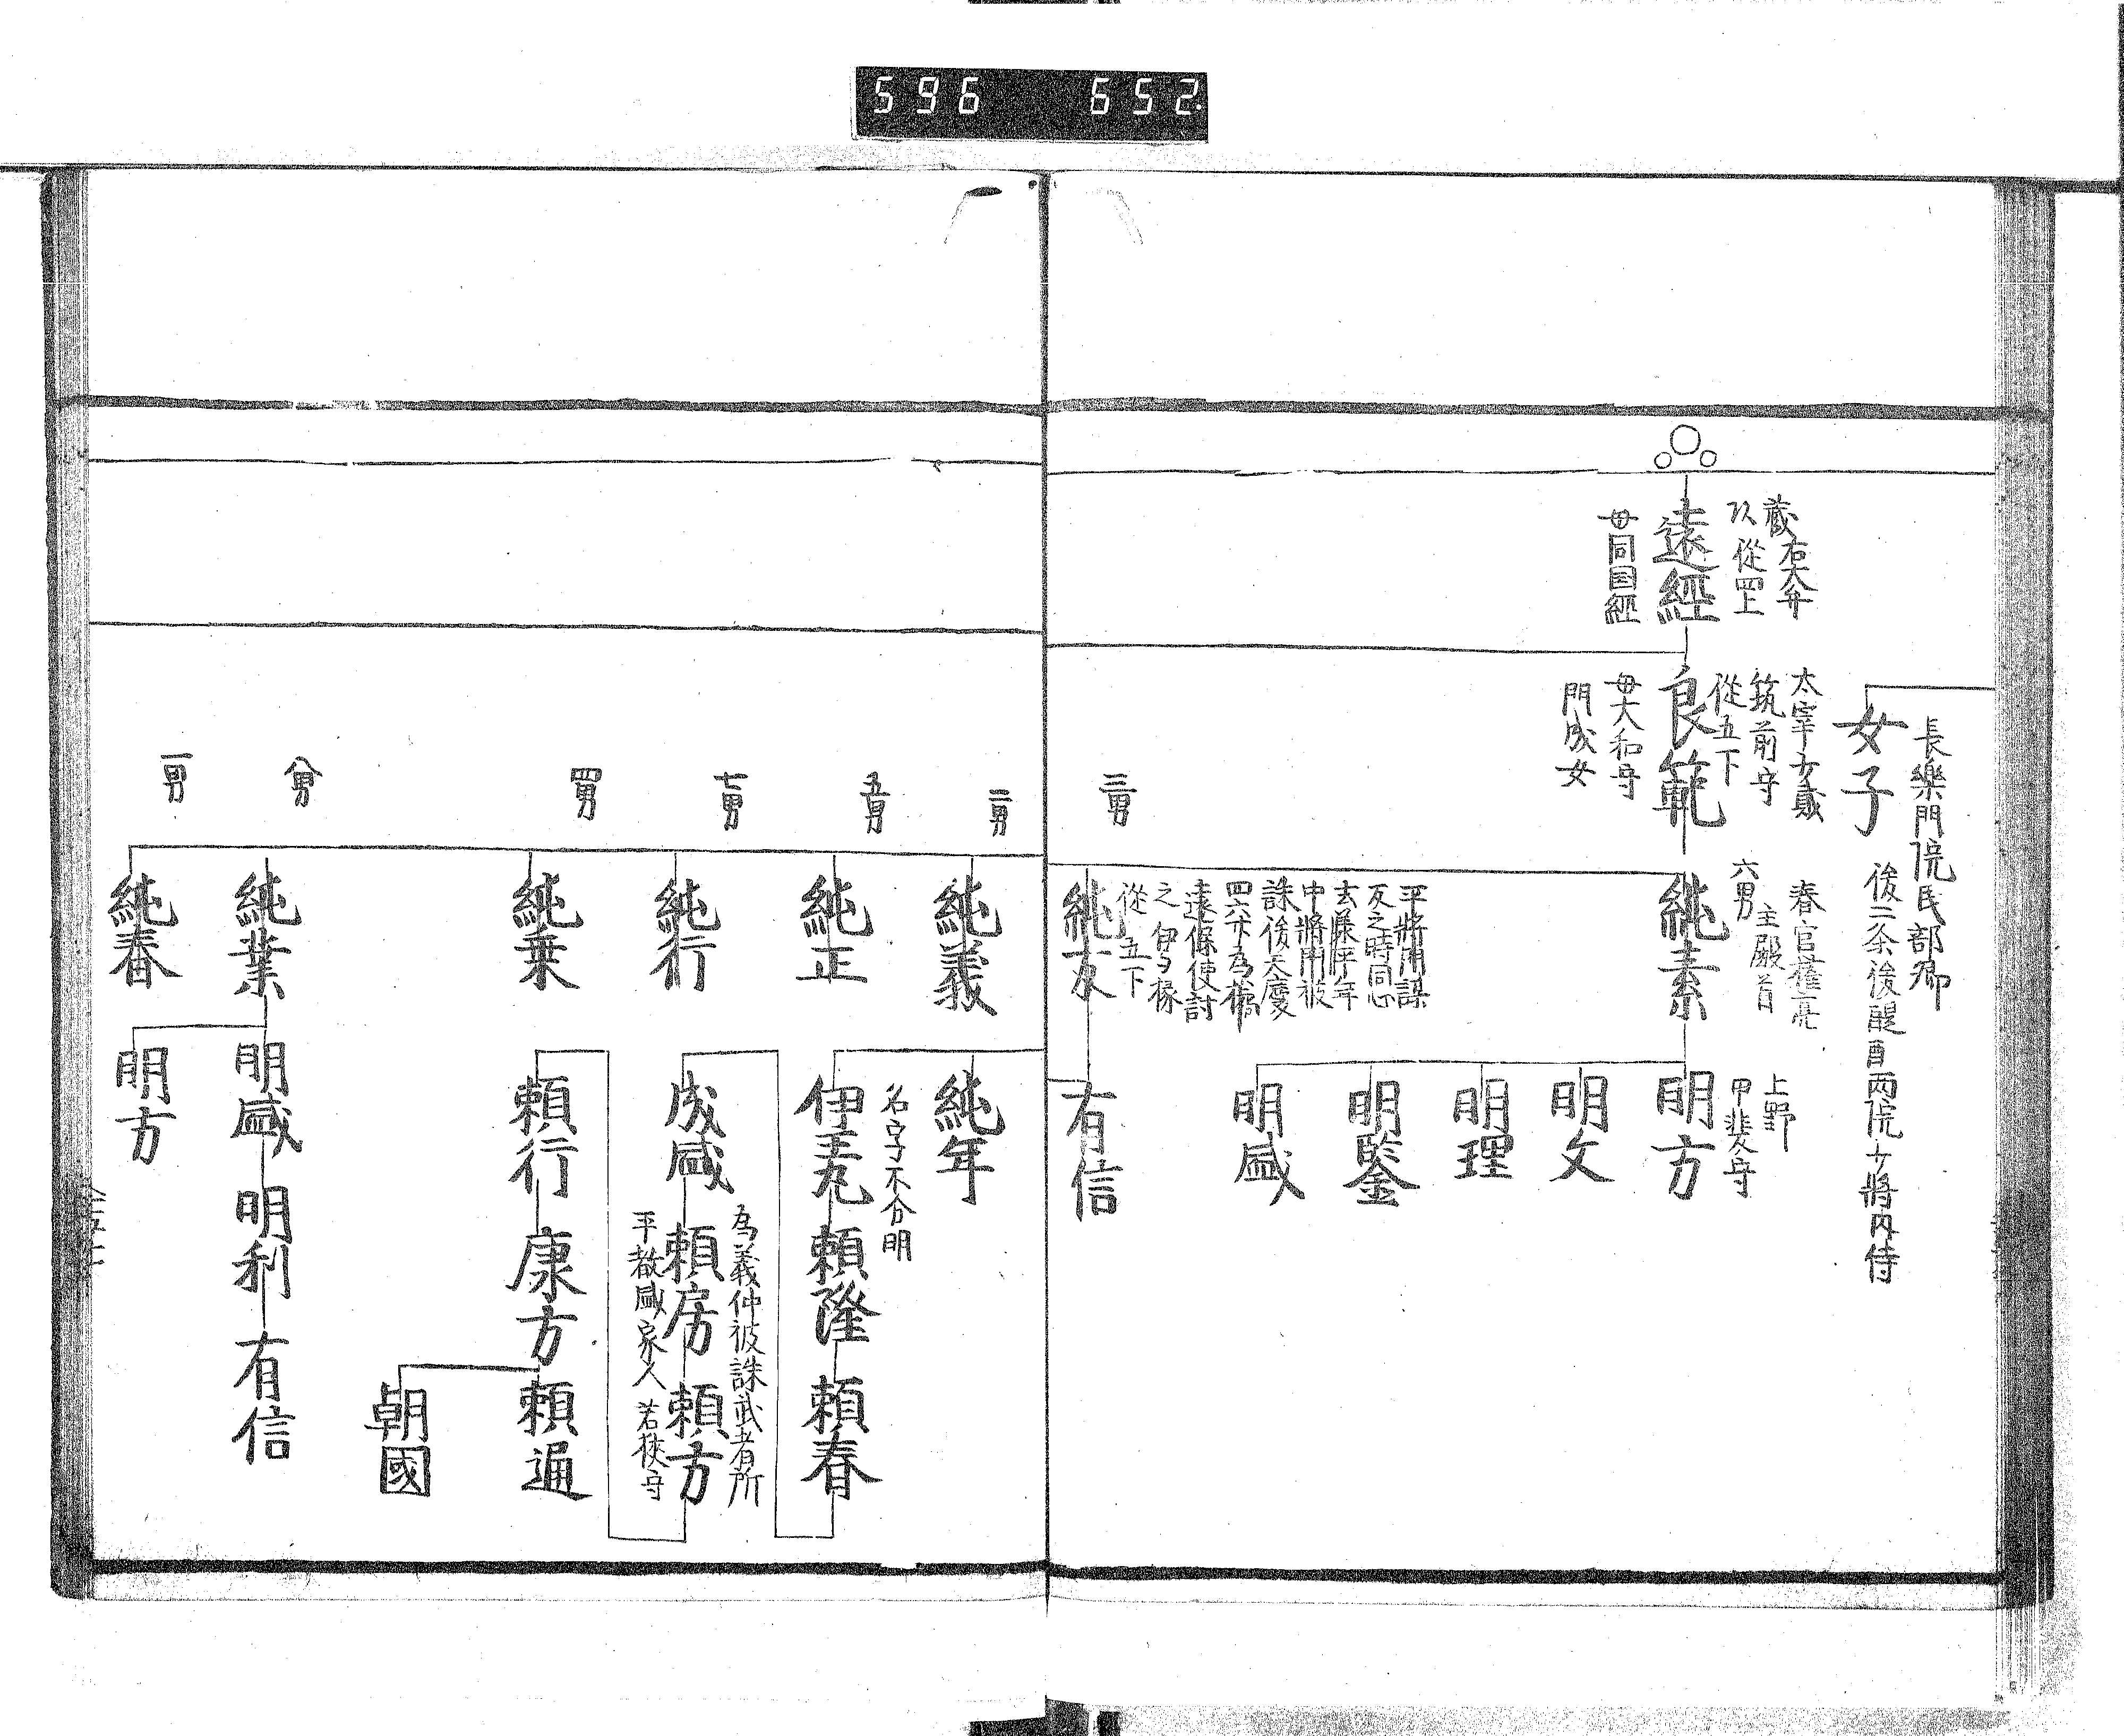 596 652
長樂門院民部卿
女子
後二条後醍酉両院少将内侍
蔵右大弁
以從四上
遠經
母同国經
太宰少貳
筑前守
從五下
良範
母大和守
門成女
春宮権亮
主殿首
六男
純素
上野
甲斐守
明方
明文
明理
明鑒
明盛
平將門謀
反之時同心
去藤
中將門被
誅後天慶
四六廿為
遠保使討
之 伊与掾
從五下
三男
純友
有信
二男
純義
純年
五男
純正
名字不分明
伊尹丸
頼隆
頼春
七男
純行
成盛
為義仲被誅武者所
頼房
頼方
平教盛家人 若狹守
四男
純乗
頼行
康方
頼遍
朝國
八男
純業
明盛
明利
有信
一男
純春
明方